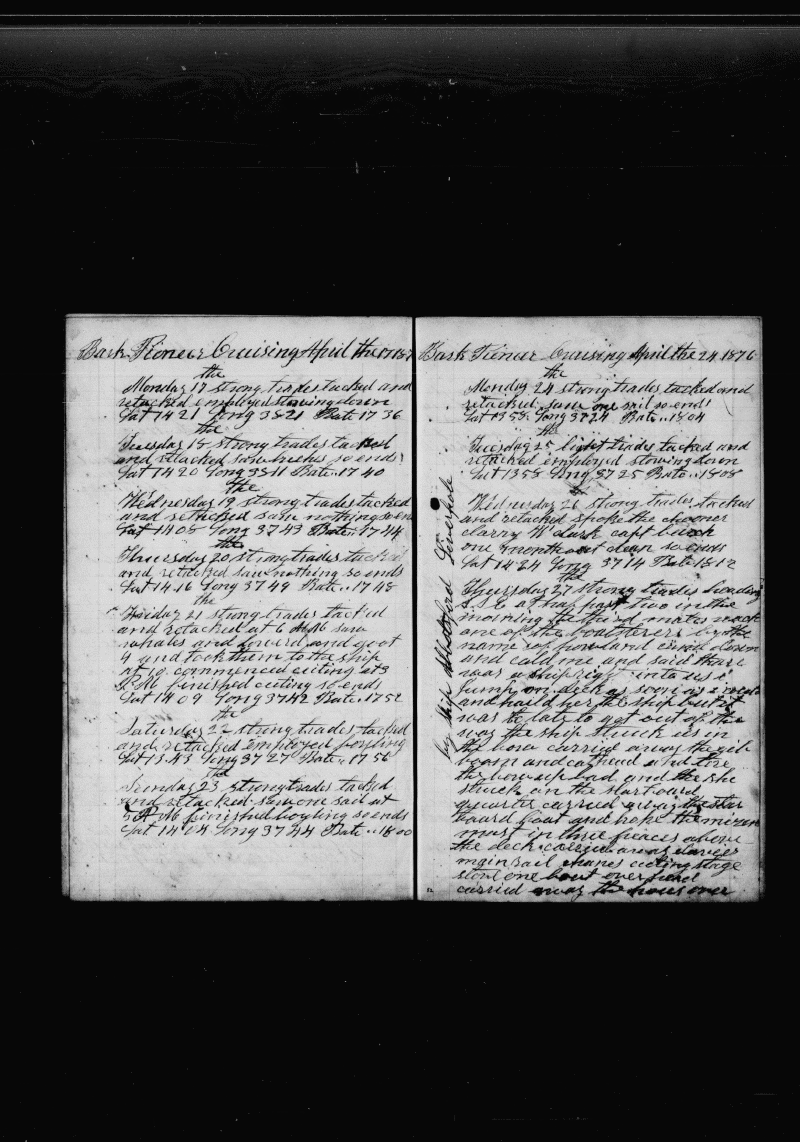 Bark Pioneer Cruising April the 17 187
the
Monday 17 strong trades tacked and
retacked employed stowing down
Lat 14 21 Long 38 21 Bate 17 36
the
Tuesday 18 strong trades tacked
and retacked saw so ends
Lat 14 20 Long 38 11 Bate .. 17 40
the
Wednesday 19 strong trades tacked
and retacked saw nothing so end
Lat 14 08 Long 37 43 Bate .. 17 44
the
Thursday 20 strong trades tacked
and retacked saw nothing so ends
Lat 14 16 Long 37 49 Bate .. 17 48
the
Friday 21 strong trades tacked
and retacked at 6 AM saw
whales and lowerd and goot
4 and took them to the ship
at 10 commenced cuting at 3
P M finished cuting so ends
Lat 14 09 Long 37 42 Bate .. 17 52
the
Saturday 22 strong trades tacked
and retacked employed boyling
Lat 13 43 Long 37 27 Bate .. 17 56
the
Sunday 23 strong trades tacked
and retacked saw one sail at
5 P M finished boyling so ends
Lat 14 04 Long 37 44 Bate .. 18 00
Bark Pioneer Cruising April the 24 1876
the
Monday 24 strong trades tacked and
retacked saw one sail so ends
Lat 13 58 Long 37 24 Bate .. 18 04
the
Tuesday 25 light trades tacked and
retacked employed stowing down
Lat 13 58 Long 37 25 Bate .. 18 08
Wednesday 26 strong trades tacked
and retacked spoke the
clarry W clark capt
one month out clean so ends
Lat 14 24 Long 37 14 Bate 18 12
the
Thursday 27 strong trades heading
S.S.E at half past two in the
morning the third mates
one of the boatsterers by the
name of howland down
and cald me and said thare
was a ship right into us i
jump on deck as soon as i
and haild her the ship but it
was to late to get out of the
way the ship struck us in
the bow carried away the gib
boom and cathead and tore
the bow up bad and the she
struck on the starboard
quarter carried away the star
board boat and rope the mizen
mast in three peaces above
the deck carried away
main sail cuting stage
stove one boat over head
carried away the over
by ship Liverpole